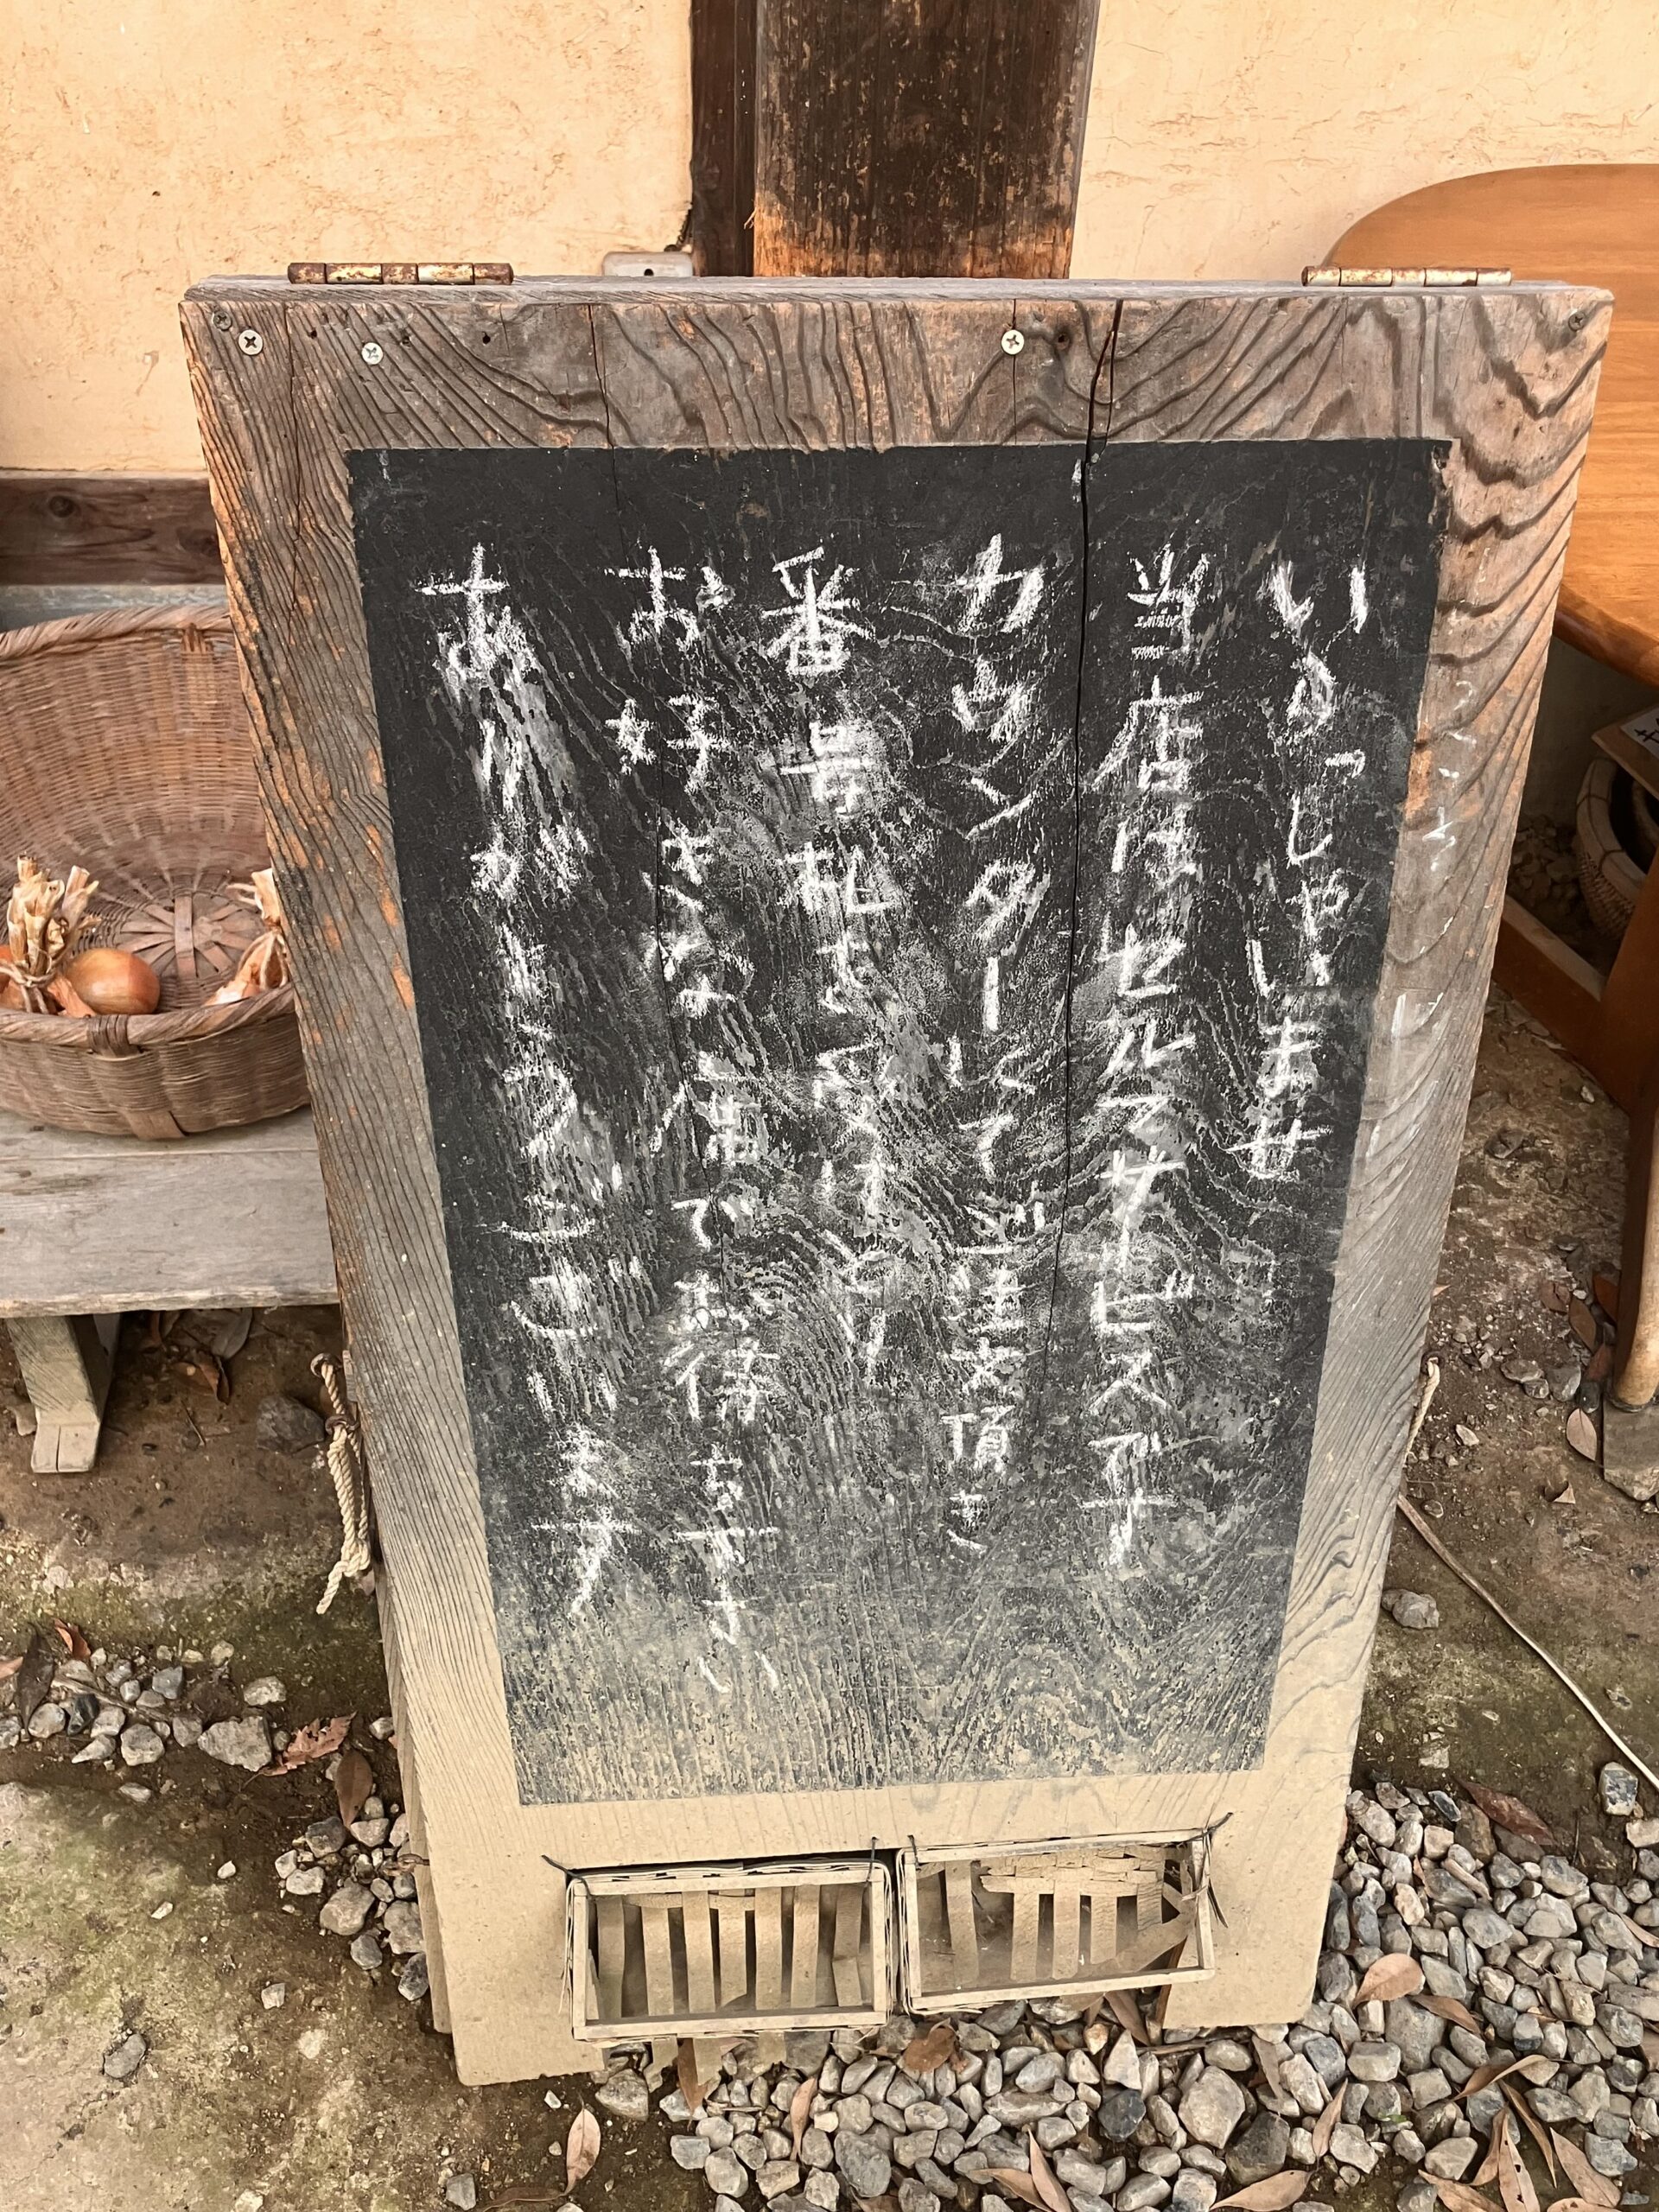 いらっしゃいませ
当店はセルフサービスです
カウンターにて注文頂き
番号札を受けとり
お好きな席でお待ち下さい
ありがとうございます